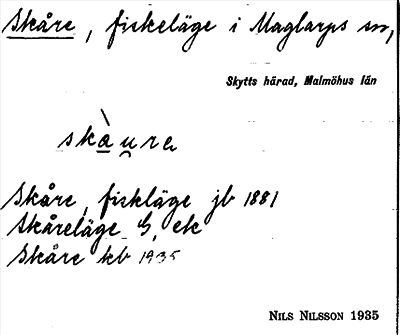 Skåre, fiskeläge i Maglarps sn,
Skytts härad, Malmöhus län
skàu̯rə
Skåre, fiskläge jb 1881
Skåreläge G, ek
Skåre kb 1935
NILS NILSSON 1935